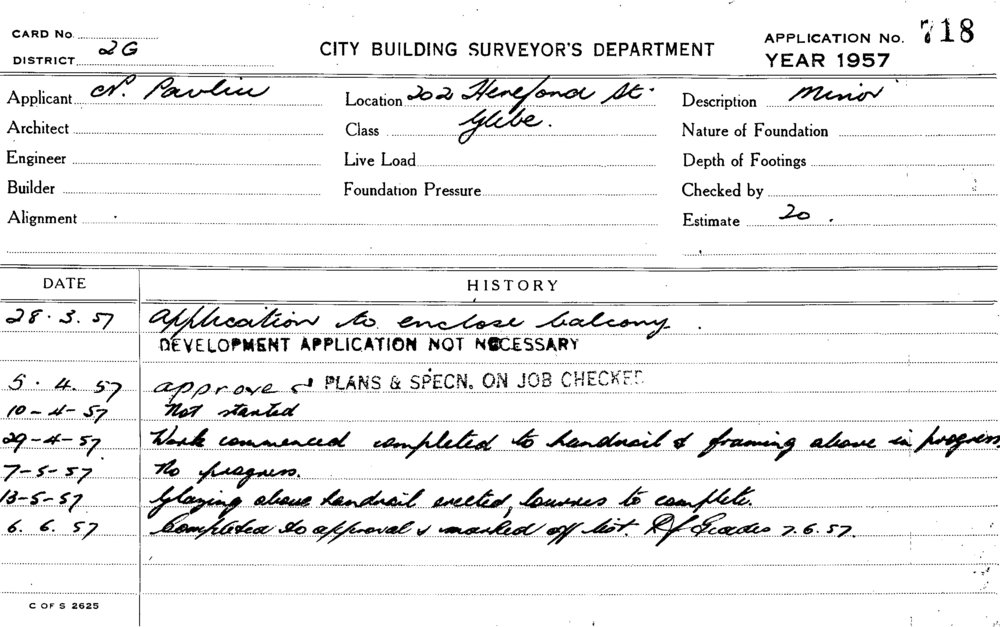 CARD No.
DISTRICT 2G
CITY BUILDING SURVEYOR'S DEPARTMENT
APPLICATION No. 718
YEAR 1957
Applicant N. Pavlin
Location 202 Hereford St.
Glebe.
Description Minor
Architect
Class
Nature of Foundation
Engineer
Live Load
Depth of Footings
Builder
Foundation Pressure
Checked by
Alignment
Estimate 20.
DATE HISTORY
28.3.57 Application to enclose balcony.
DEVELOPMENT APPLICATION NOT NECESSARY
5.4.57 approved PLANS & SPECN. ON JOB CHECKED
10-4-57 Not started
29-4-57 Work commenced completed to handrail & framing above in progress
7-5-57 No progress.
13-5-57 Glazing above handrail erected, louvres to complete.
6.6.57 Completed to approval & marked off list. 7.6.57.
C OF S 2625